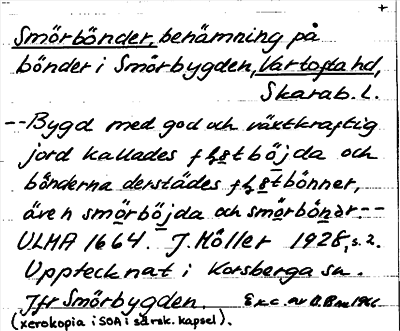 Smörbönder, benämning på
bönder i Smörbygden, Vartofta hd,
Skarab. l.
--Bygd med god och växtkraftig
jord kalladesböjda och
bönderna derstädes bönner,
även smörböjda och smörbönar.--
ULMA 1664. J. Möller 1928, s. 2.
Upptecknat i Korsberga sn.
Jfr Smörbygden. Exc. av
(xerokopia i SOA i särsk. kapsel).